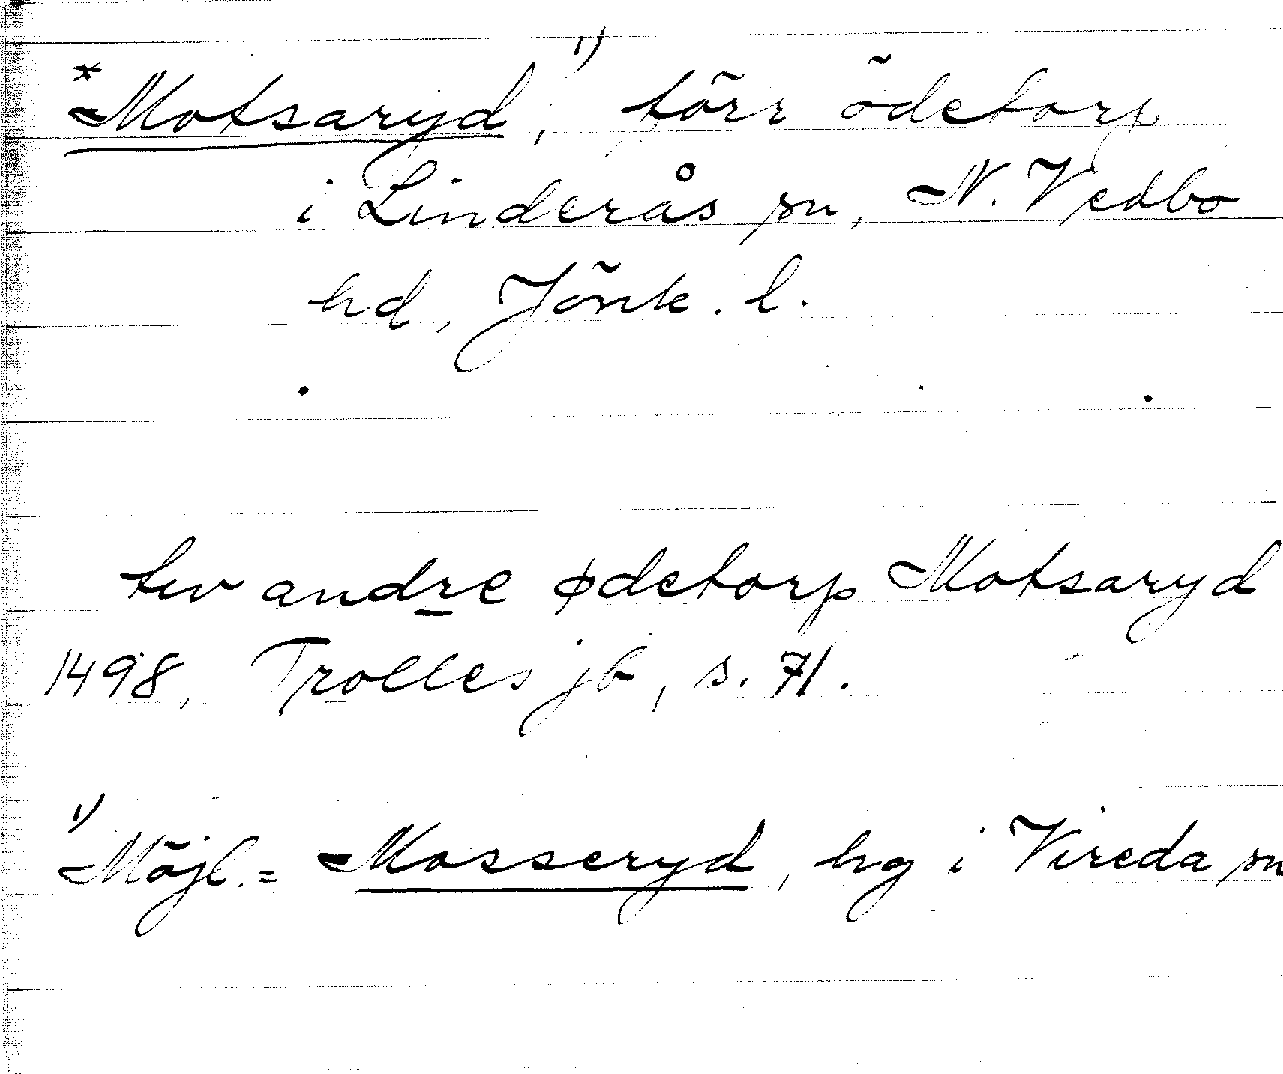 *Motsaryd,¹⁾ förr ödetorp
i Linderås sn, N. Vedbo
hd, Jönk. l.
tw andre ødetorp Motsaryd
1498, Trolles jb, s. 71.
¹⁾ Möjl. = Mosseryd, hg i Vireda sn